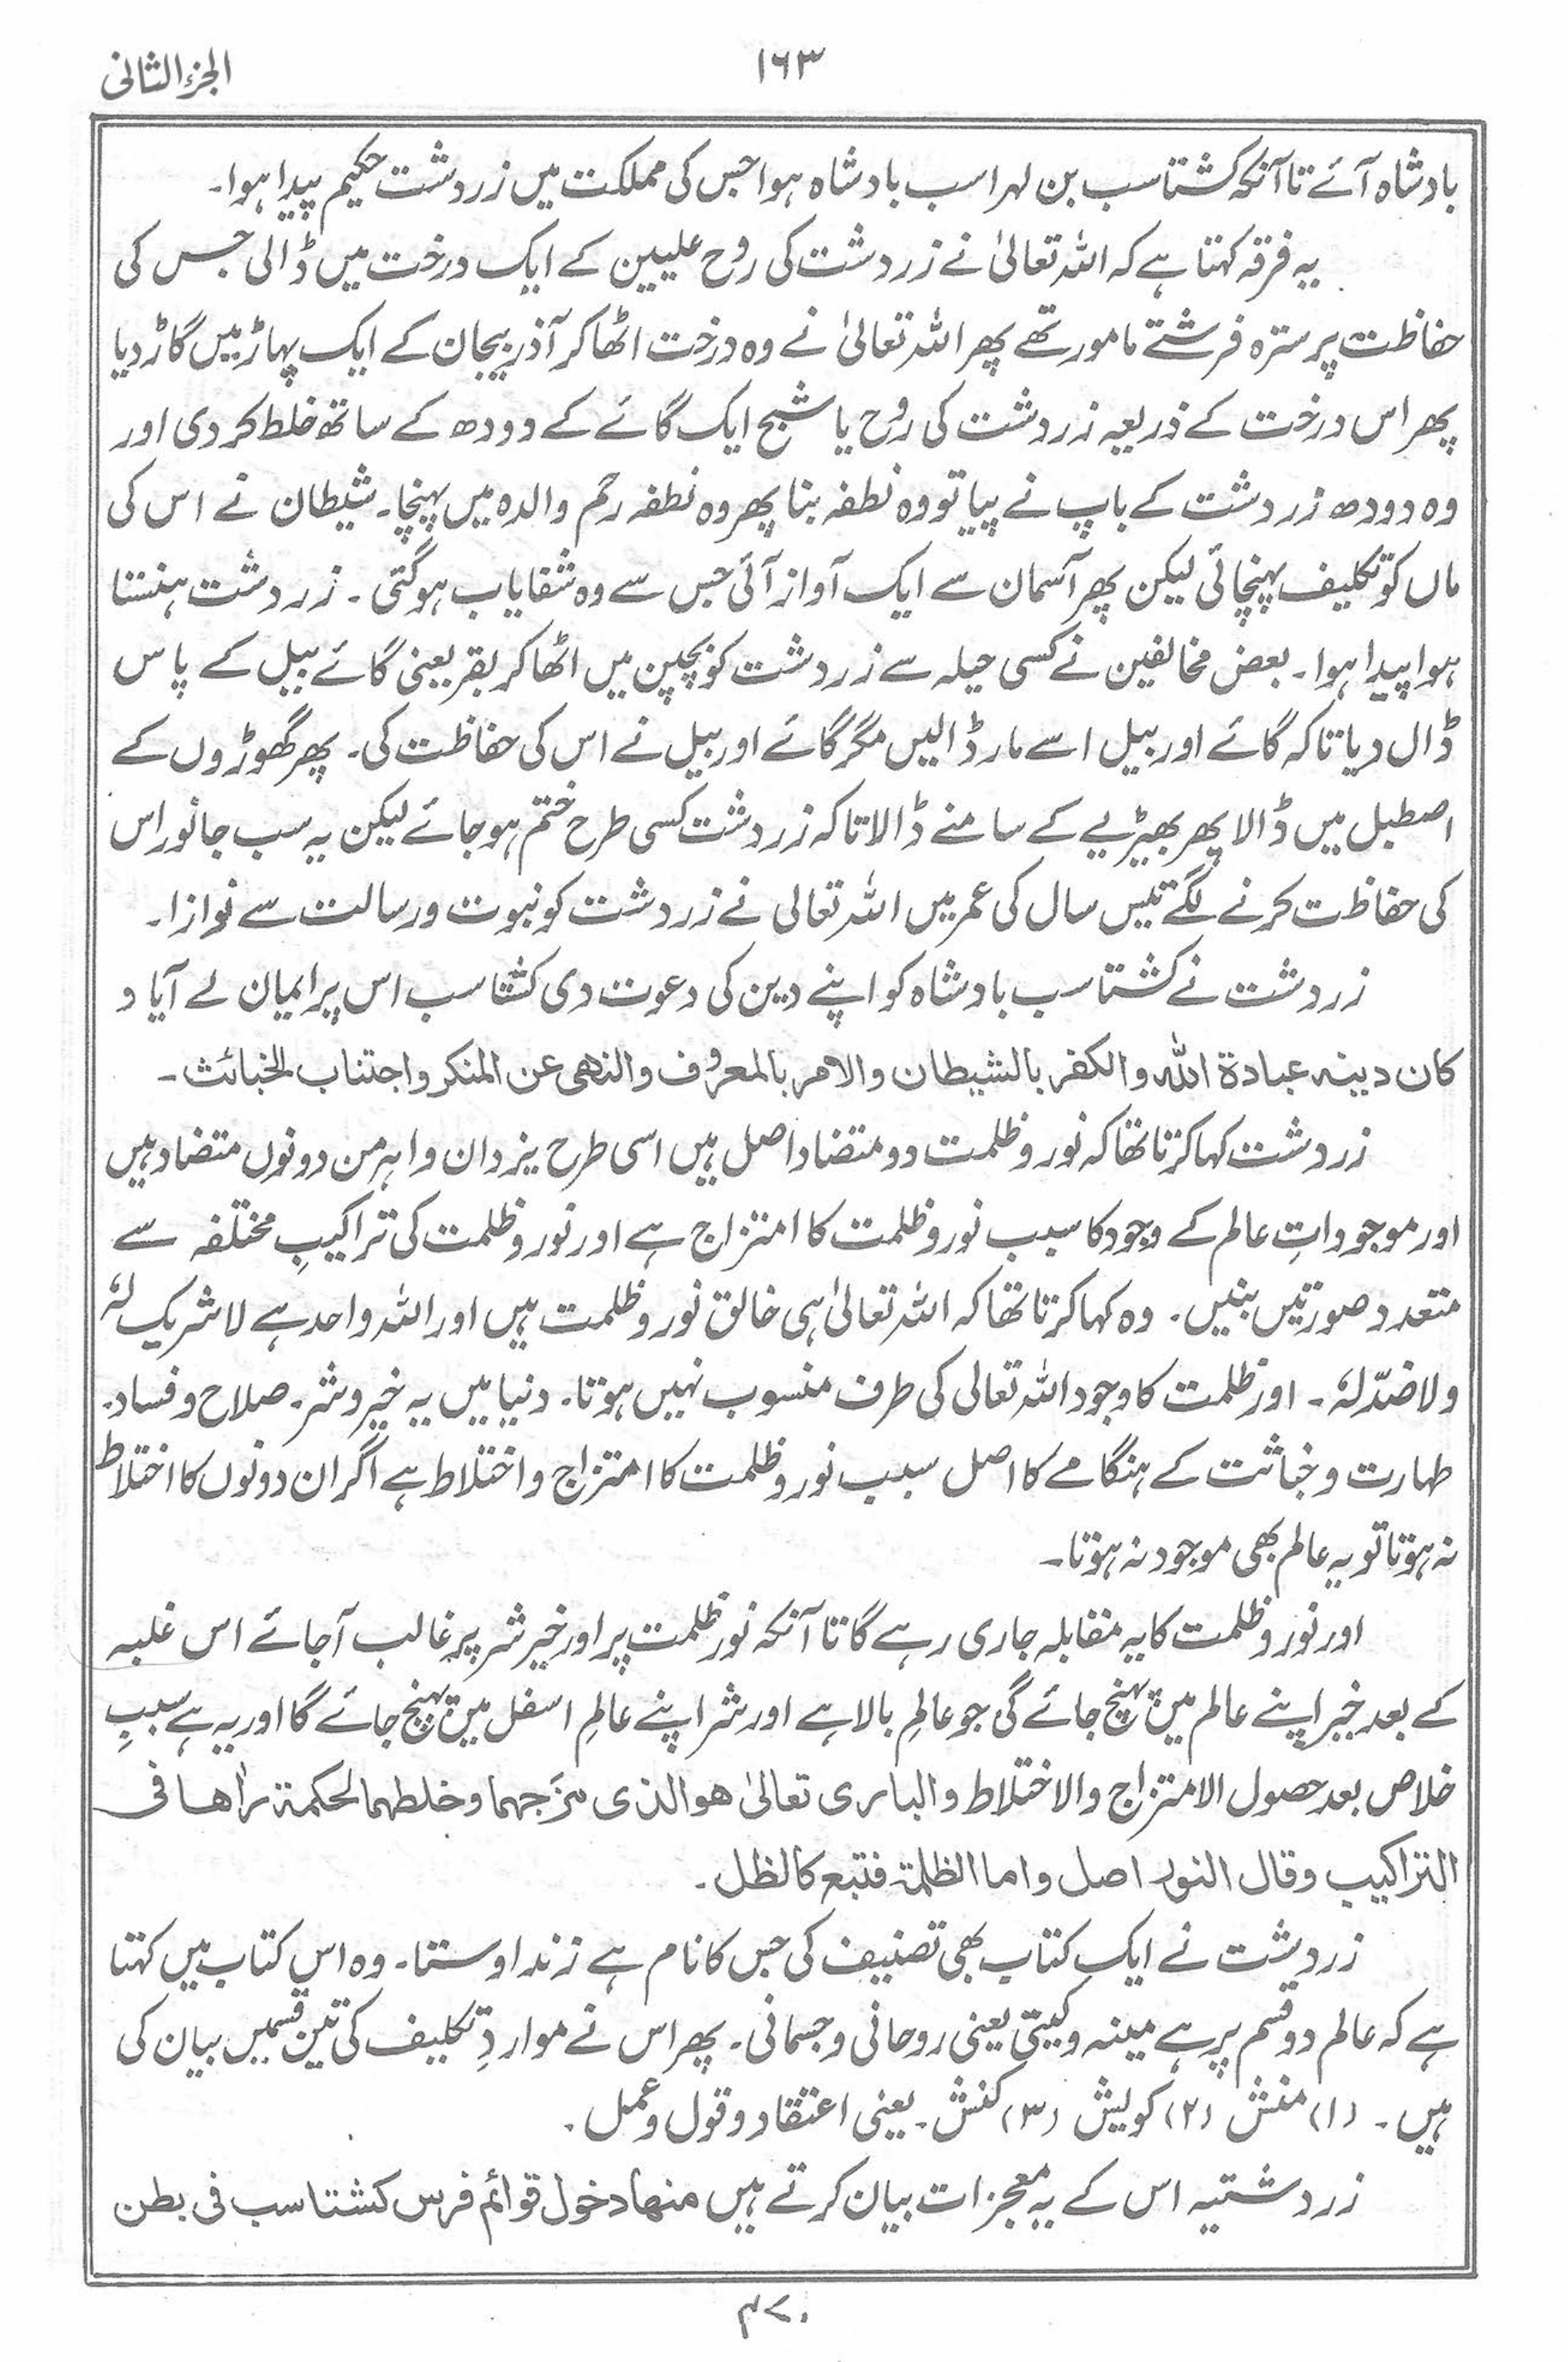 الجزء الثانی
۱۶۳
بادشاہ آئے تا آنکہ گشتاسب بن لہراسب بادشاہ ہوا جس کی مملکت میں زردشت حکیم پیدا ہوا۔
یہ فرقہ کہتا ہے کہ اللہ تعالیٰ نے زردشت کی روح علیین کے ایک درخت میں ڈالی جس کی
حفاظت پر سترہ فرشتے مامور تھے پھر اللہ تعالیٰ نے وہ درخت اٹھا کر آذربیجان کے ایک پہاڑ میں گاڑ دیا
پھر اس درخت کے ذریعہ زردشت کی روح یا شبح ایک گائے کے دودھ کے ساتھ خلط کر دی اور
وہ دودھ زردشت کے باپ نے پیا تو وہ نطفہ بنا پھر وہ نطفہ رحم والدہ میں پہنچا۔ شیطان نے اس کی
ماں کو تکلیف پہنچائی لیکن پھر آسمان سے ایک آواز آئی جس سے وہ شفایاب ہوگئی۔ زردشت ہنستا
ہوا پیدا ہوا۔ بعض مخالفین نے کسی حیلہ سے زردشت کو بچپن میں اٹھا کر بقر یعنی گائے بیل کے پاس
ڈال دیا تاکہ گائے اور بیل اسے مار ڈالیں مگر گائے اور بیل نے اس کی حفاظت کی۔ پھر گھوڑوں کے
اصطبل میں ڈالا پھر بھیڑیے کے سامنے ڈالا تاکہ زردشت کسی طرح ختم ہو جائے لیکن یہ سب جانور اس
کی حفاظت کرنے لگے تیس سال کی عمر میں اللہ تعالی نے زردشت کو نبوت و رسالت سے نوازا۔
زردشت نے گشتاسب بادشاہ کو اپنے دین کی دعوت دی گشتاسب اس پر ایمان لے آیا و
کان دینہ عبادۃ اللہ والکفر بالشیطان والامر بالمعروف والنھی عن المنکر واجتناب الخبائث۔
زردشت کہا کرتا تھا کہ نور و ظلمت دو متضاد اصل ہیں اسی طرح یزدان و اہرمن دونوں متضاد ہیں
اور موجوداتِ عالم کے وجود کا سبب نور و ظلمت کا امتزاج ہے اور نور و ظلمت کی تراکیبِ مختلفہ سے
متعدد صورتیں بنیں۔ وہ کہا کرتا تھا کہ اللہ تعالیٰ ہی خالق نور و ظلمت ہیں اور اللہ واحد ہے لا شریک لہٗ
ولا ضدّ لہٗ۔ اور ظلمت کا وجود اللہ تعالی کی طرف منسوب نہیں ہوتا۔ دنیا میں یہ خیر و شر۔ صلاح و فساد۔
طہارت و خباثت کے ہنگامے کا اصل سبب نور و ظلمت کا امتزاج و اختلاط ہے اگر ان دونوں کا اختلاط
نہ ہوتا تو یہ عالم بھی موجود نہ ہوتا۔
اور نور و ظلمت کا یہ مقابلہ جاری رہے گا تا آنکہ نور ظلمت پر اور خیر شر پر غالب آجائے اس غلبہ
کے بعد خیر اپنے عالم میں پہنچ جائے گی جو عالمِ بالا ہے اور شر اپنے عالمِ اسفل میں پہنچ جائے گا اور یہ ہے سببِ
خلاص بعد حصول الامتزاج والاختلاط والباری تعالیٰ ھو الذی مَزَجھما وخلطھما لحکمۃ راٰھا فی
التراکیب وقال النور اصل واما الظلمۃ فتبع کالظل۔
زردیشت نے ایک کتاب بھی تصنیف کی جس کا نام ہے زند اوستا۔ وہ اس کتاب میں کہتا
ہے کہ عالم دو قسم پر ہے مینہ و کیتی یعنی روحانی و جسمانی۔ پھر اس نے مواردِ تکلیف کی تین قسمیں بیان کی
ہیں۔ (۱) منش (۲) کویش (۳) کنش۔ یعنی اعتقاد و قول و عمل۔
زردشتیہ اس کے یہ معجزات بیان کرتے ہیں منھا دخول قوائم فرس کشتاسب فی بطن
۴۷۰